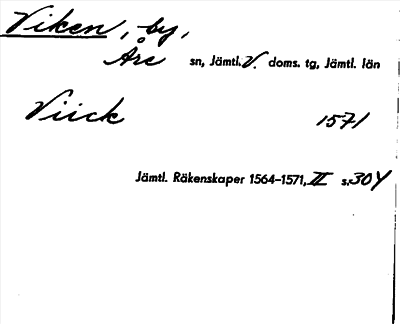 Viken, by,
Åre sn, Jämtl. V. doms. tg, Jämtl. län
Viick 1571
Jämtl. Räkenskaper 1564–1571, II s. 304